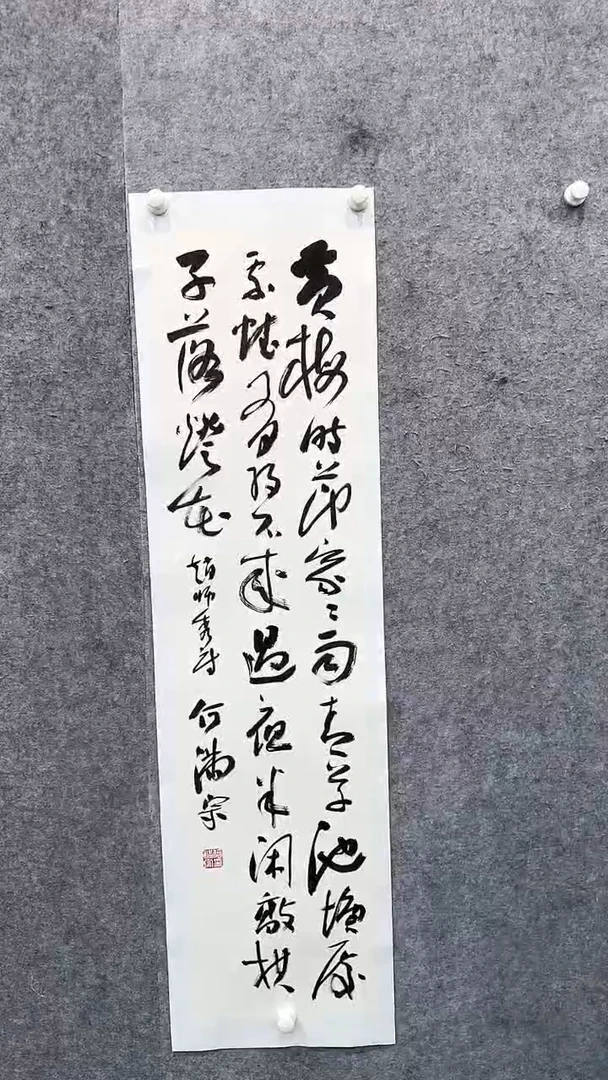 黄梅时节家〻雨青草池塘处
处蛙有约不来過夜半闲敲棋
子落燈花 赵师秀诗 何满宗